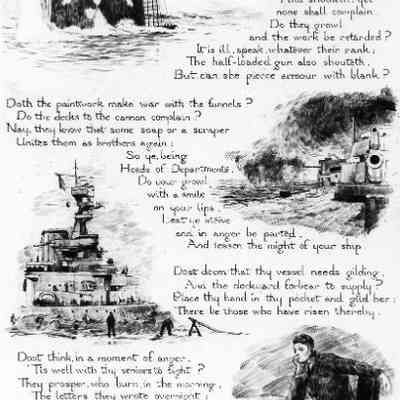 none shall complain.
Do they growl
and the work be retarded?
It is ill, speak, whatever their rank;
The half-loaded gun also shouteth,
But can she pierce armour with blank?
Doth the paintwork make war with the funnels?
Do the decks to the cannon complain?
Nay, they know that some soap or a scraper
Unites them as brothers again;
So ye, being
Heads of Departments,
Do your growl
with a smile
on your lips,
Lest ye strive
and in anger be parted,
And lessen the might of your ship.
Dost deem that thy vessel needs gilding,
And the dockyard forbear to supply?
Place thy hand in thy pocket and gild her;
There be those who have risen thereby.
Dost think, in a moment of anger,
'Tis well with thy seniors to fight?
They prosper, who burn, in the morning,
The letters they wrote overnight;